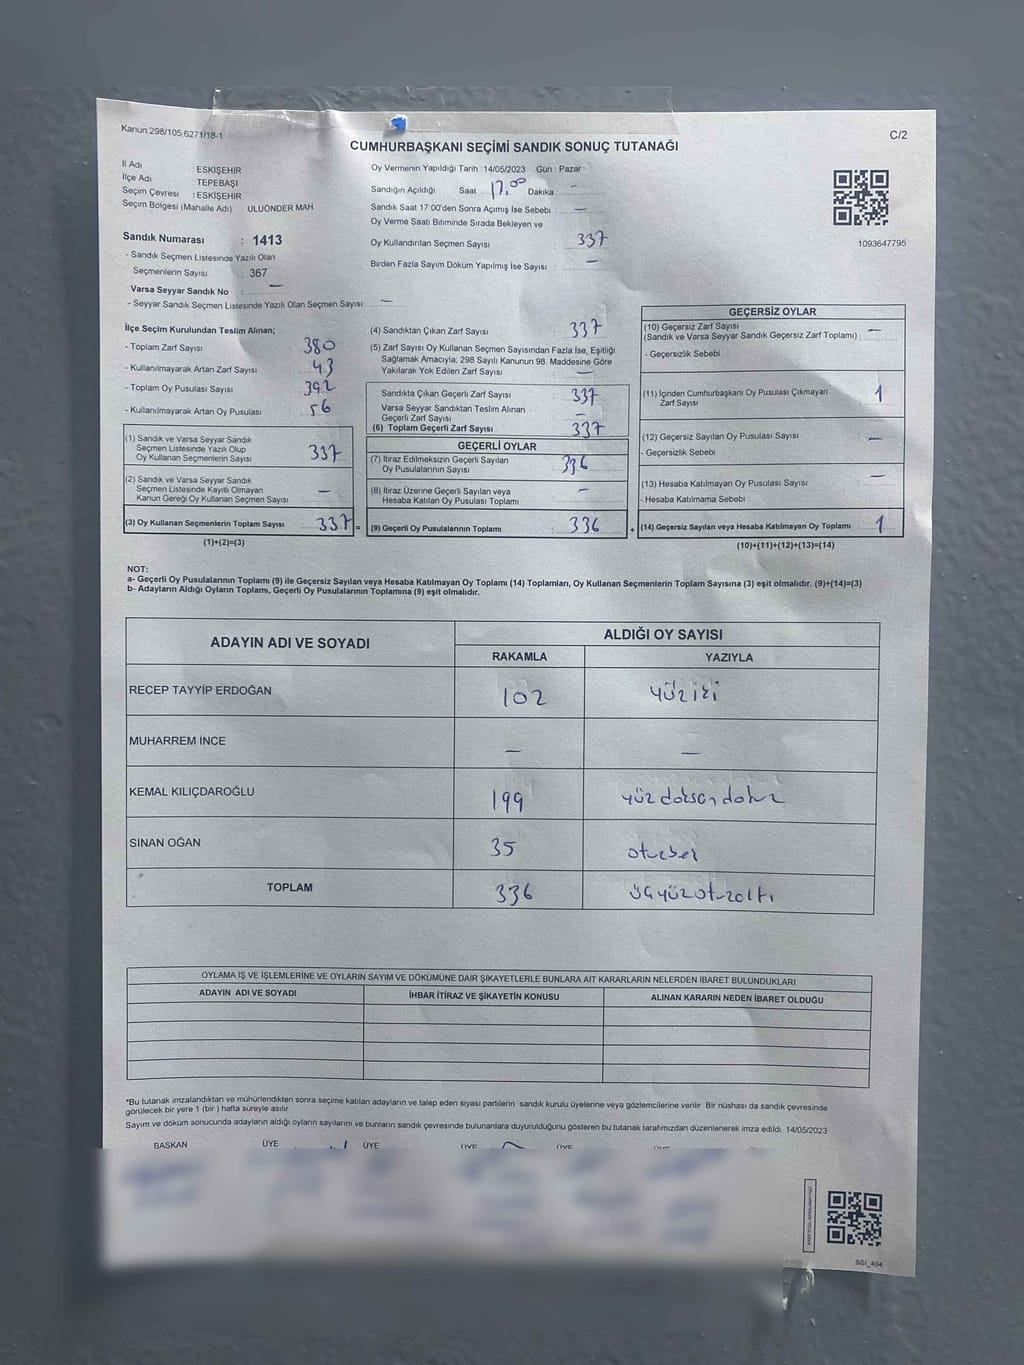 Kanun 298/105,6271/18-1
C/2
CUMHURBAŞKANI SEÇİMİ SANDIK SONUÇ TUTANAĞI
İl Adı ESKİŞEHİR
İlçe Adı TEPEBAŞI
Seçim Çevresi : ESKİŞEHİR
Seçim Bölgesi (Mahalle Adı) : ULUÖNDER MAH
Sandık Numarası : 1413
- Sandık Seçmen Listesinde Yazılı Olan
Seçmenlerin Sayısı : 367
Varsa Seyyar Sandık No : —
- Seyyar Sandık Seçmen Listesinde Yazılı Olan Seçmen Sayısı: —
Oy Vermenin Yapıldığı Tarih 14/05/2023 Gün : Pazar
Sandığın Açıldığı Saat 17,00 Dakika —
Sandık Saat 17:00'den Sonra Açımış İse Sebebi : —
Oy Verme Saati Bitiminde Sırada Bekleyen ve
Oy Kullandırılan Seçmen Sayısı 337
Birden Fazla Sayım Döküm Yapılmış İse Sayısı : —
1093647795
İlçe Seçim Kurulundan Teslim Alınan;
- Toplam Zarf Sayısı 380
- Kullanılmayarak Artan Zarf Sayısı 43
- Toplam Oy Pusulası Sayısı 392
- Kullanılmayarak Artan Oy Pusulası 56
(1) Sandık ve Varsa Seyyar Sandık
Seçmen Listesinde Yazılı Olup
Oy Kullanan Seçmenlerin Sayısı 337
(2) Sandık ve Varsa Seyyar Sandık
Seçmen Listesinde Kayıtlı Olmayan
Kanun Gereği Oy Kullanan Seçmen Sayısı —
(3) Oy Kullanan Seçmenlerin Toplam Sayısı 337 =
(1)+(2)=(3)
(4) Sandıktan Çıkan Zarf Sayısı 337
(5) Zarf Sayısı Oy Kullanan Seçmen Sayısından Fazla İse, Eşitliği
Sağlamak Amacıyla; 298 Sayılı Kanunun 98. Maddesine Göre
Yakılarak Yok Edilen Zarf Sayısı —
Sandıkta Çıkan Geçerli Zarf Sayısı 337
Varsa Seyyar Sandıktan Teslim Alınan
Geçerli Zarf Sayısı —
(6) Toplam Geçerli Zarf Sayısı 337
GEÇERLİ OYLAR
(7) İtiraz Edilmeksizin Geçerli Sayılan
Oy Pusulalarının Sayısı 336
(8) İtiraz Üzerine Geçerli Sayılan veya
Hesaba Katılan Oy Pusulası Toplamı —
(9) Geçerli Oy Pusulalarının Toplamı 336 +
GEÇERSİZ OYLAR
(10) Geçersiz Zarf Sayısı
(Sandık ve Varsa Seyyar Sandık Geçersiz Zarf Toplamı) : —
- Geçersizlik Sebebi
(11) İçinden Cumhurbaşkanı Oy Pusulası Çıkmayan
Zarf Sayısı 1
(12) Geçersiz Sayılan Oy Pusulası Sayısı —
- Geçersizlik Sebebi
(13) Hesaba Katılmayan Oy Pusulası Sayısı —
- Hesaba Katılmama Sebebi
(14) Geçersiz Sayılan veya Hesaba Katılmayan Oy Toplamı 1
(10)+(11)+(12)+(13)=(14)
NOT:
a- Geçerli Oy Pusulalarının Toplamı (9) ile Geçersiz Sayılan veya Hesaba Katılmayan Oy Toplamı (14) Toplamları, Oy Kullanan Seçmenlerin Toplam Sayısına (3) eşit olmalıdır. (9)+(14)=(3)
b- Adayların Aldığı Oyların Toplamı, Geçerli Oy Pusulalarının Toplamına (9) eşit olmalıdır.
ADAYIN ADI VE SOYADI
ALDIĞI OY SAYISI
RAKAMLA YAZIYLA
RECEP TAYYİP ERDOĞAN 102 yüz iki
MUHARREM İNCE — —
KEMAL KILIÇDAROĞLU 199 yüz doksan dokuz
SİNAN OĞAN 35 otuzbeş
TOPLAM 336 üçyüzotuzaltı
OYLAMA İŞ VE İŞLEMLERİNE VE OYLARIN SAYIM VE DÖKÜMÜNE DAİR ŞİKAYETLERLE BUNLARA AİT KARARLARIN NELERDEN İBARET BULUNDUKLARI
ADAYIN ADI VE SOYADI İHBAR İTİRAZ VE ŞİKAYETİN KONUSU ALINAN KARARIN NEDEN İBARET OLDUĞU
*Bu tutanak imzalandıktan ve mühürlendikten sonra seçime katılan adayların ve talep eden siyasi partilerin sandık kurulu üyelerine veya gözlemcilerine verilir. Bir nüshası da sandık çevresinde
görülecek bir yere 1 (bir ) hafta süreyle asılır
Sayım ve döküm sonucunda adayların aldığı oyların sayılarını ve bunların sandık çevresinde bulunanlara duyurulduğunu gösteren bu tutanak tarafımızdan düzenlenerek imza edildi. 14/05/2023
BAŞKAN ÜYE ÜYE ÜYE ÜYE
SSI_404